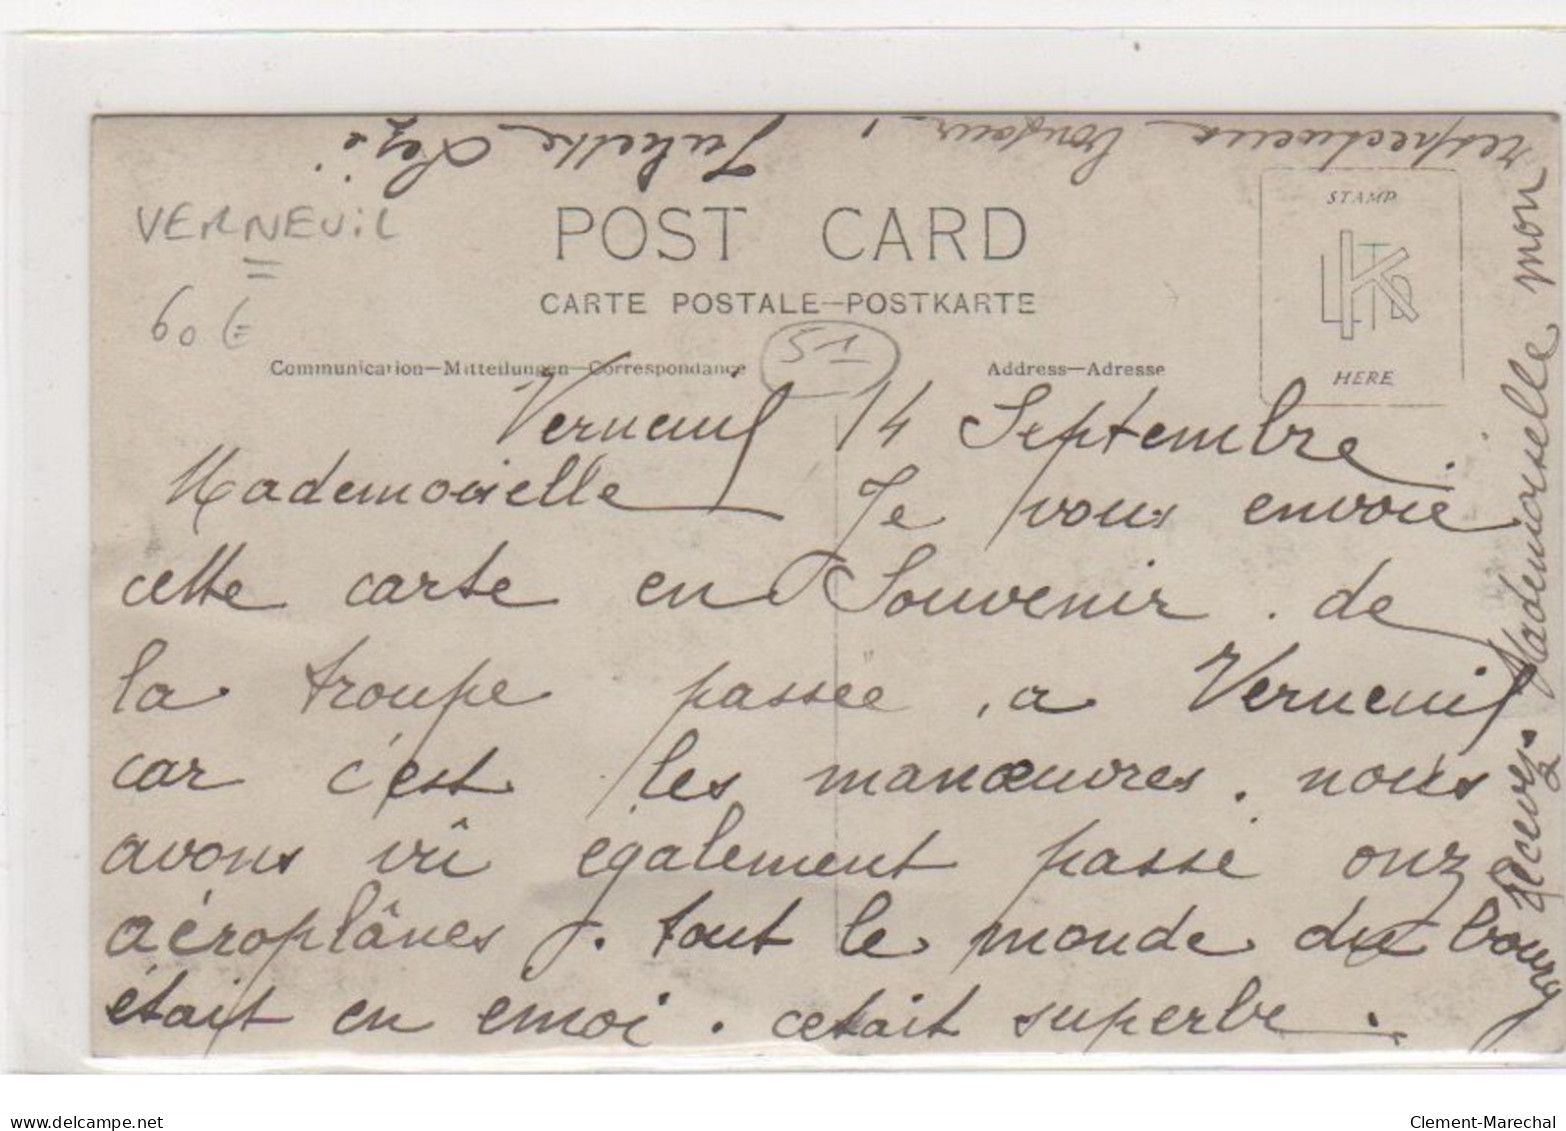 VERNEUIL
60 €
POST CARD
CARTE POSTALE—POSTKARTE
Communication—Mitteilungen—Correspondance
15
Address—Adresse
STAMP
HERE
Verneuil 14 Septembre.
Mademoiselle Je vous envoie
cette carte en Souvenir de
la troupe passée a Verneuil
car c'est les manœuvres. nous
avons vû également passé onz
aéroplânes. tout le monde du bourg
était en emoi. cetait superbe.
Recevez Mademoiselle mon
respectueux bonjour,
Juliette
delcampe.net
Clement-Marechal